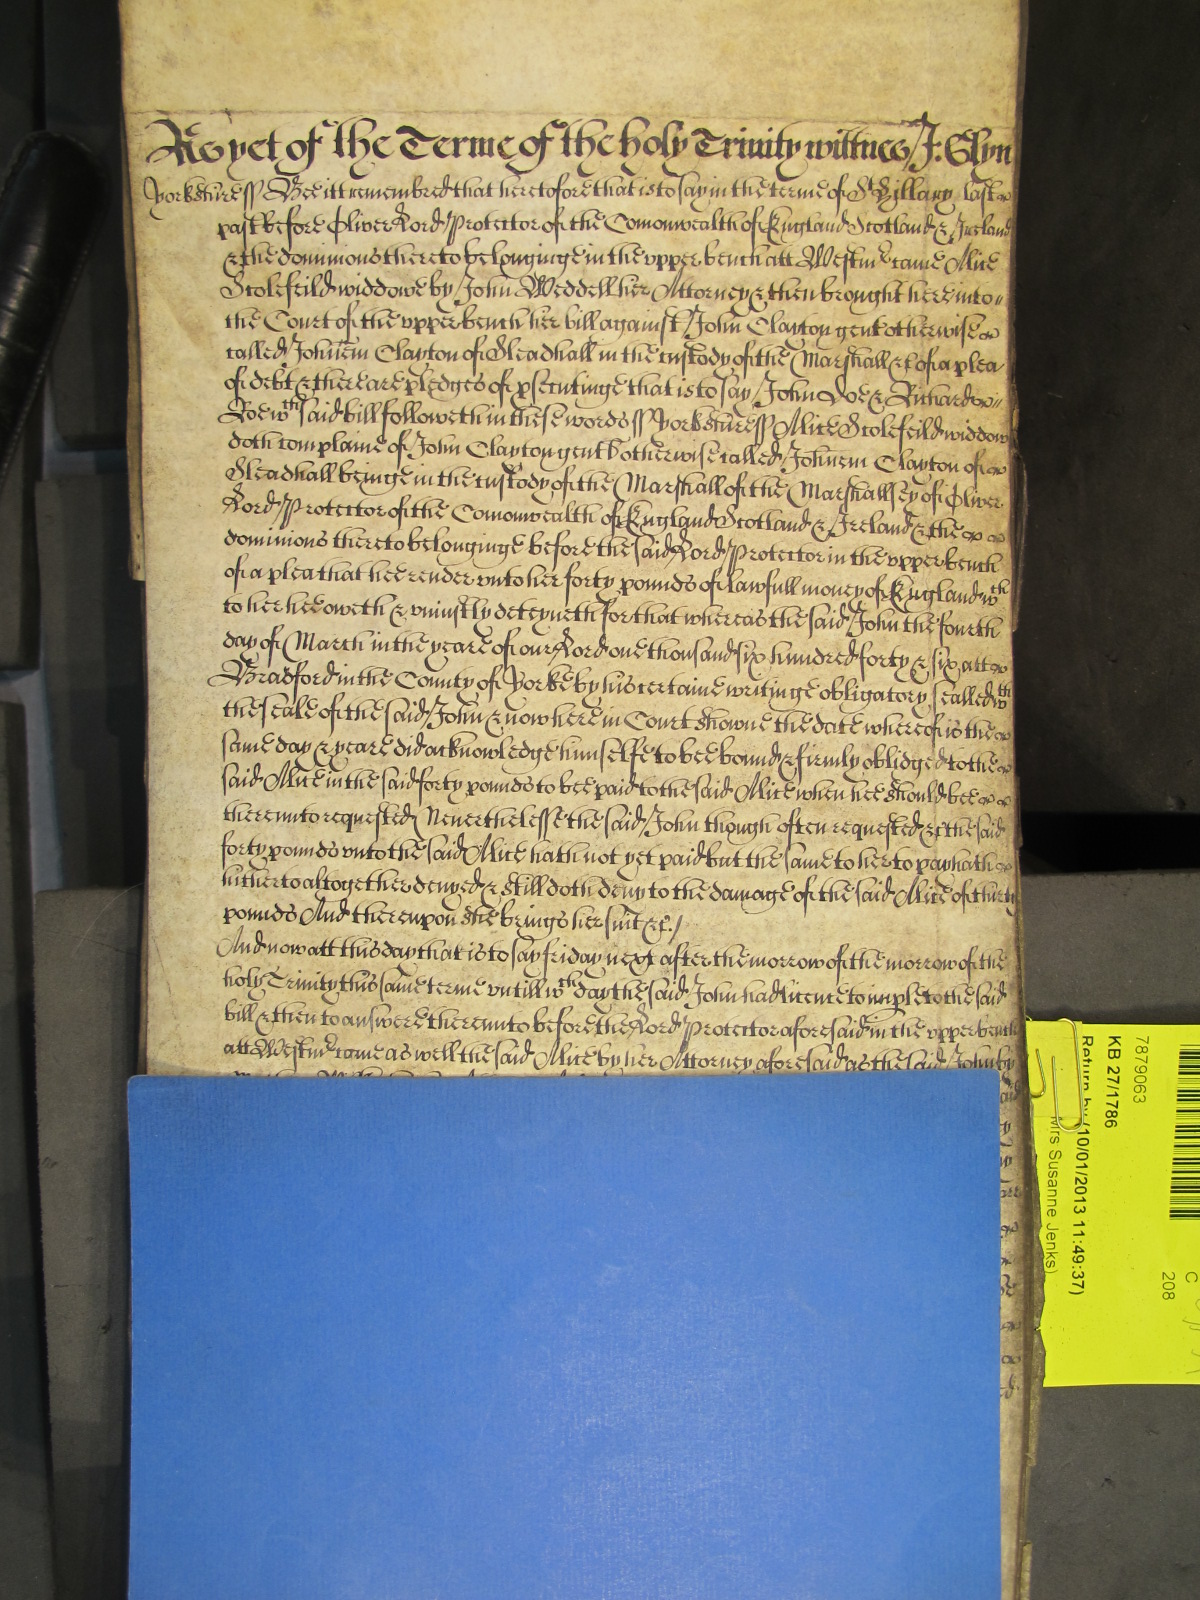 As yet of the Terme of the holy Trinity wittnes J: Glyn
Yorkshire ss Bee itt remembred that heretofore that is to say in the terme of St Hillary last
past before Oliver Lord Protector of the Comonwealth of England Scotland & Ireland
& the dominions thereto belonginge in the upper bench att Westmr came Alice
Scolefeild widdowe by John Weddell her Attorney & then brought here into
the Court of the upper bench her bill against John Clayton gent otherwise
called Johnem Clayton of Gleadhall in the custody of the Marshall &c of a plea
of debt & there are pledges of psecutinge that is to say John Doe & Richard
Roe wth said bill followeth in these words ss Yorkshire ss Alice Scolefeild widdow
doth complaine of John Clayton gent otherwise called Johnem Clayton of
Gleadhall beinge in the custody of the Marshall of the Marshallsey of Oliver
Lord Protector of the Comonwealth of England Scotland & Ireland & the
dominions thereto belonginge before the said Lord Protector in the upper bench
of a plea that hee render unto her forty pounds of lawfull money of England wch
to her hee oweth & uniustly deteyneth for that whereas the said John the fourth
day of March in the yeare of our Lord one thousand six hundred forty & six att
Bradford in the County of Yorke by his certaine writinge obligatory sealled wth
the seale of the said John & now here in Court showne the date whereof is the
same day & yeare did acknowledge himselfe to bee bound & firmly obliged to the
said Alice in the said forty pounds to bee paid to the said Alice when hee should bee
thereunto requested Neverthelesse the said John though often requested &c the said
forty pounds unto the said Alice hath not yet paid but the same to her to pay hath
hitherto altogether denyed & still doth deny to the damage of the said Alice of thirty
pounds And thereupon shee brings her suit &c./
And now att this day that is to say friday next after the morrow of the morrow of the
holy Trinity this same terme untill wch day the said John had licence to imple to the said
bill & then to answere thereunto before the Lord Protector aforesaid in the upper bench
att Westmr came as well the said Alice by her Attorney aforesaid as the said John by
7879063
KB 27/1786
Return by (10/01/2013 11:49:37)
Mrs Susanne Jenks)
C
208